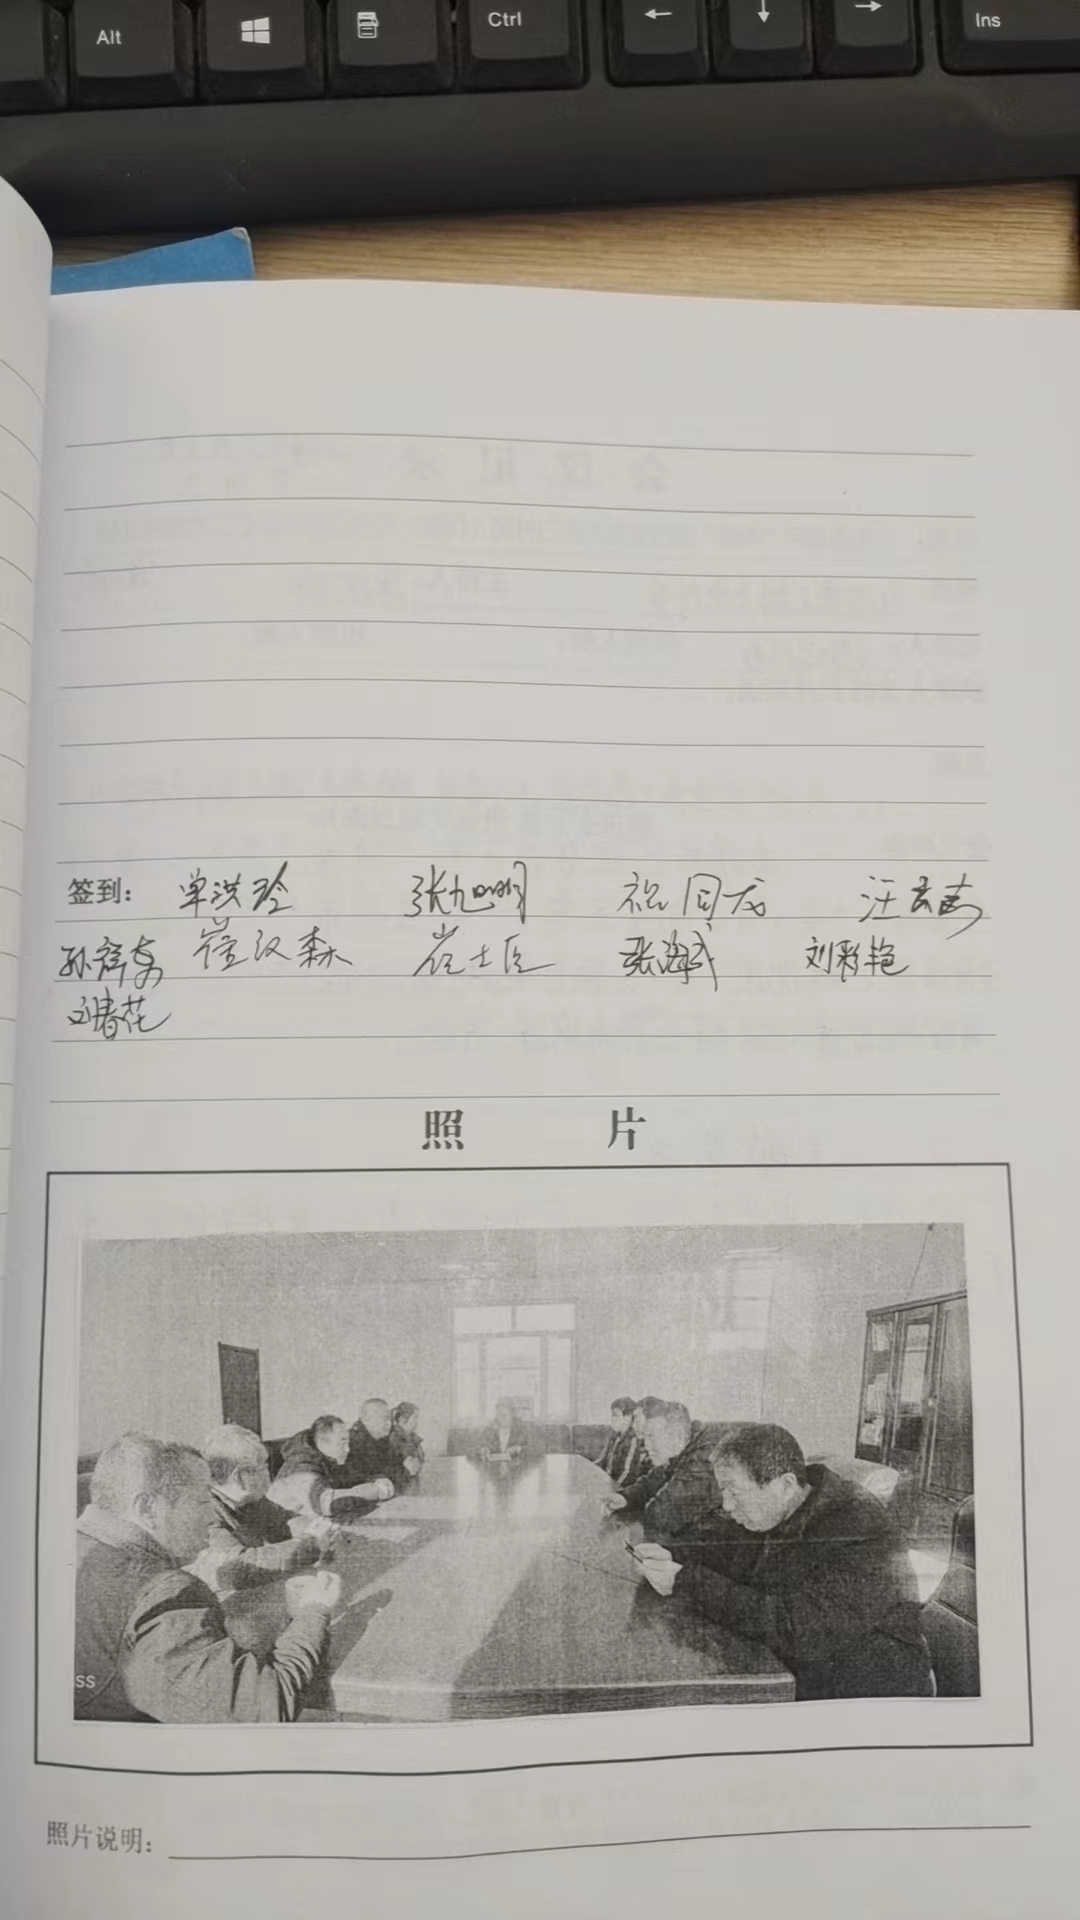 Alt Ctrl Ins
签到： 单洪玲 张旭明 祝国成 汪
孙 崔汉森 崔士臣 张海武 刘彩艳
刘春花
照 片
SS
照片说明：